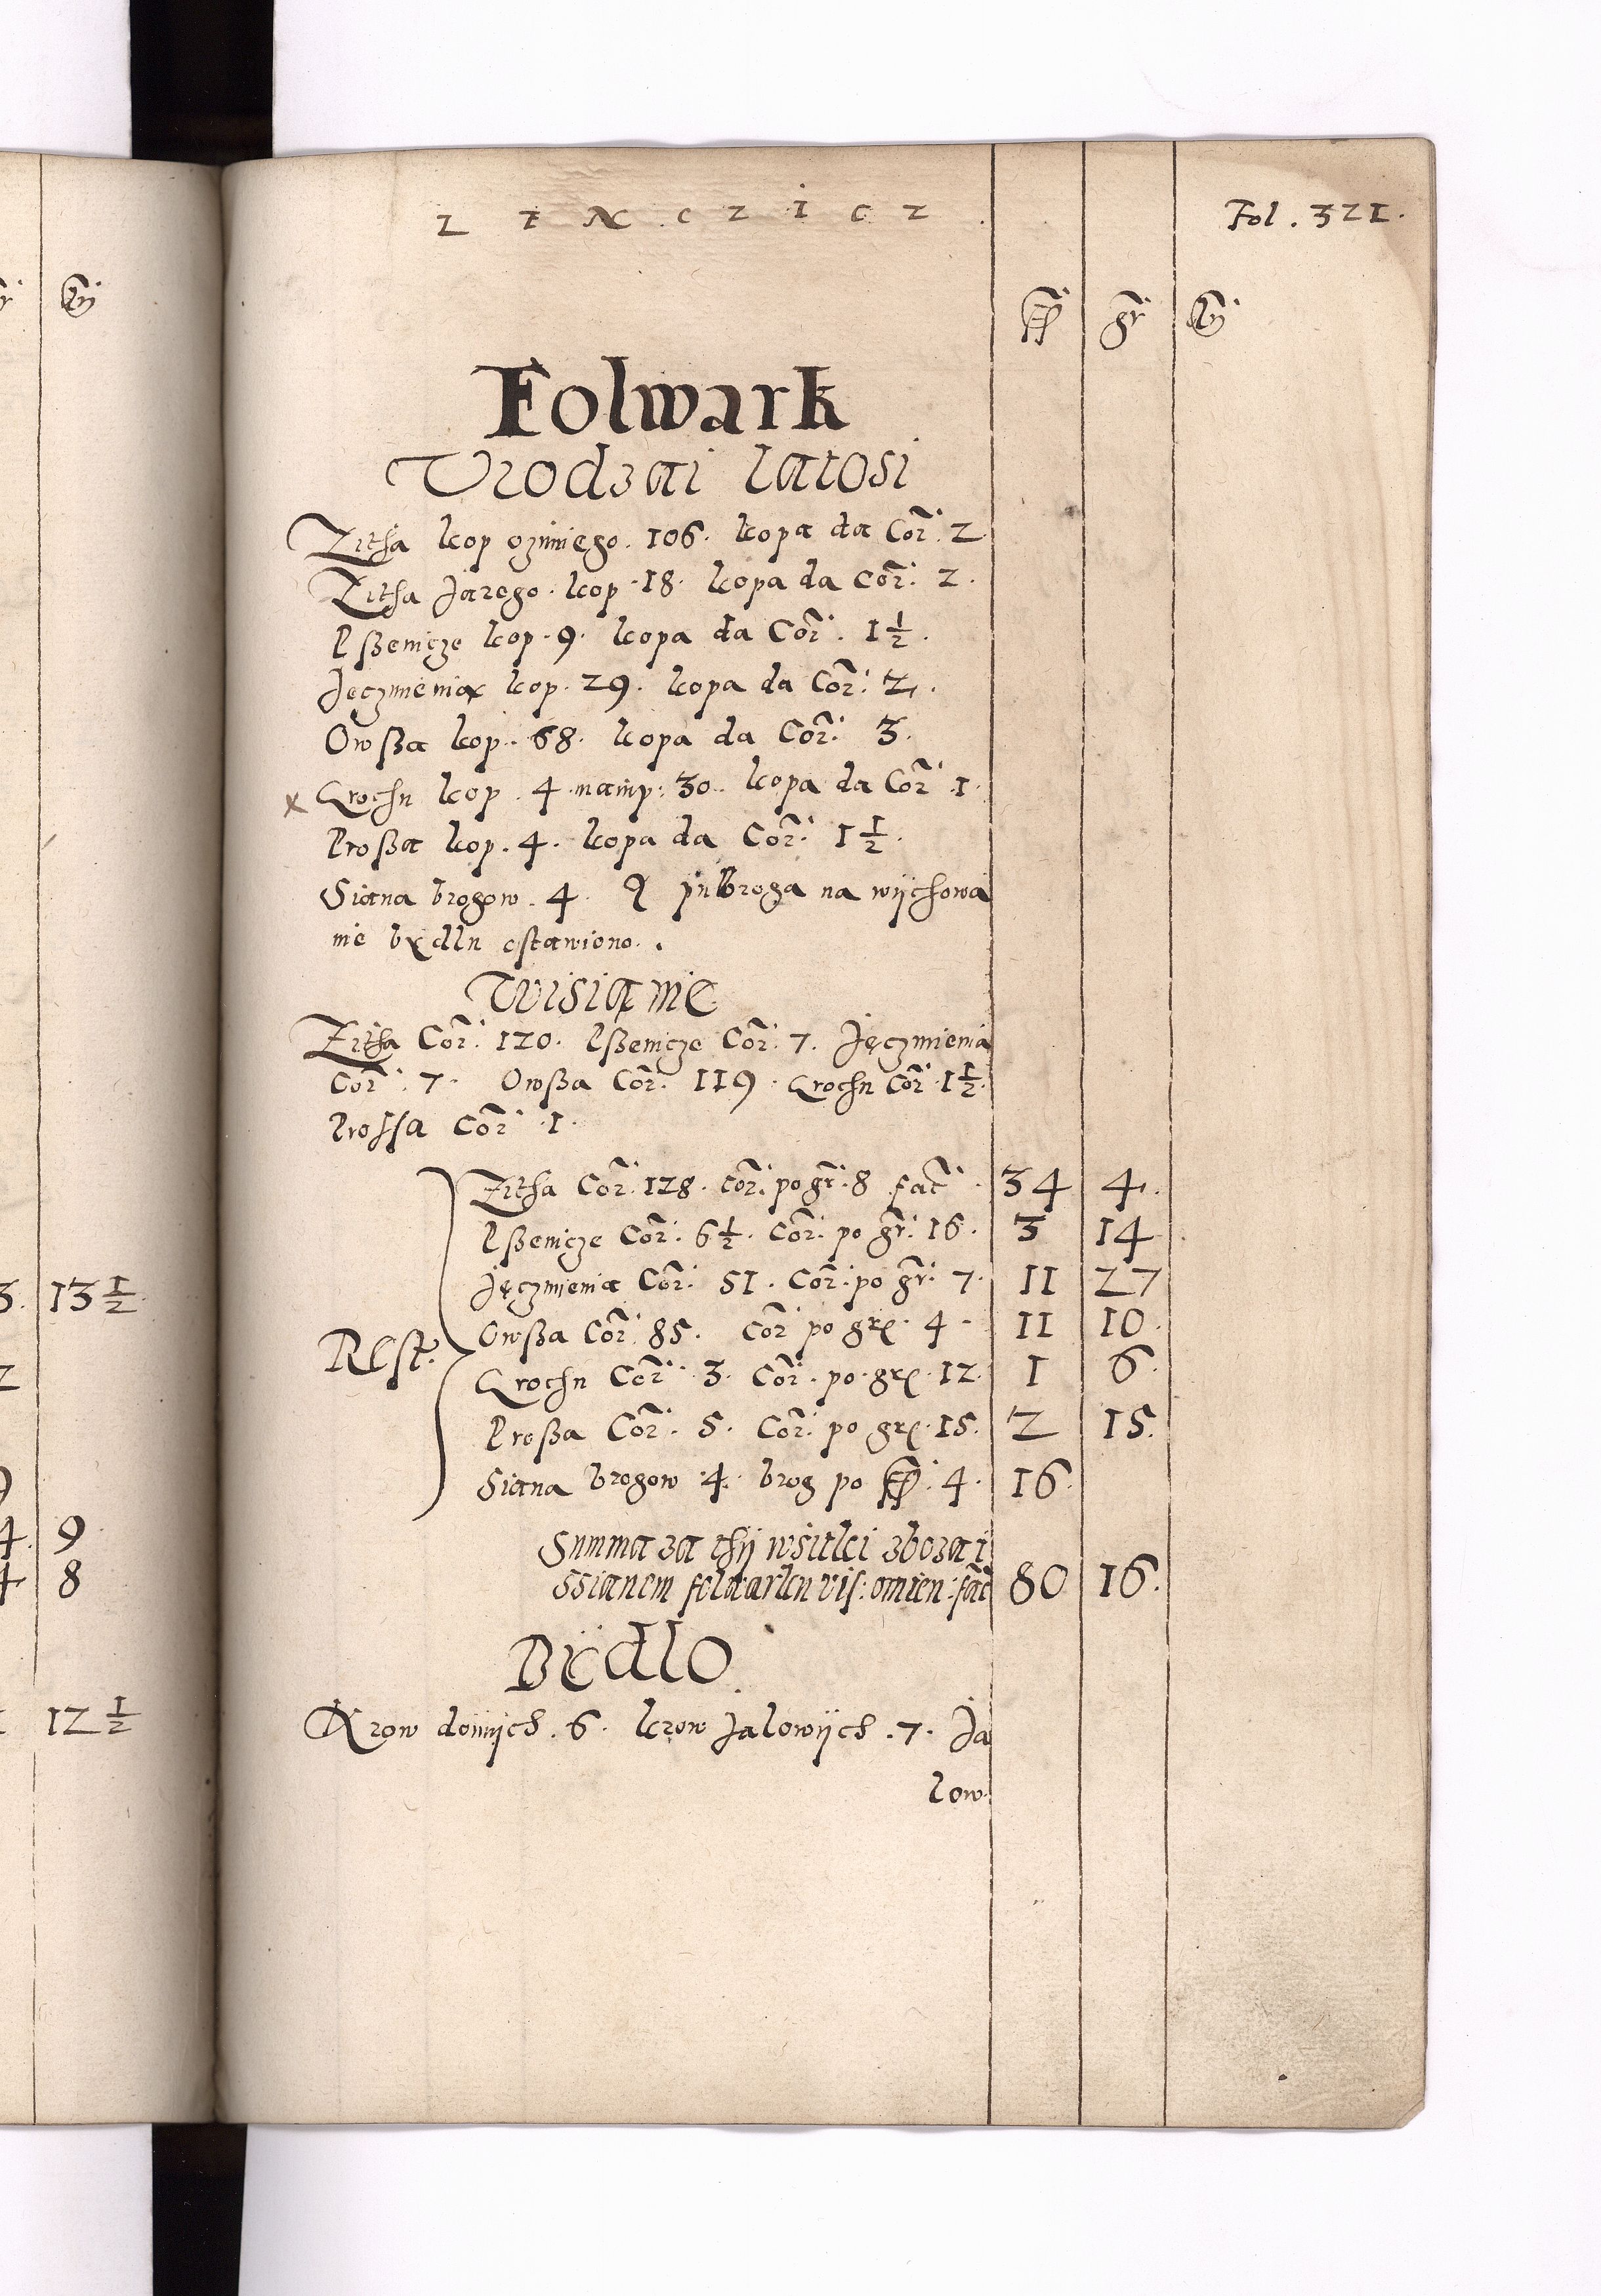 Z I N C Z I C Z
Fol. 321.
gr
Folwark
Vrodzai latosi
Zitha kop ozimiego. 106. kopa da Cor: 2
Zitha Jarego. kop 18. kopa da Cor: 2.
Pßenicze kop. 9. kopa da Cor: 1 1/2.
Jęczmienia kop. 29. kopa da Cor: 2.
Owßa kop. 68. kopa da Cor: 3.
x Grochu kop. 4 mamp: 30. kopa da Cor: 1.
Proßa kop. 4. kopa da Cor: 1 1/2.
Siana brogow. 4. pulbroga na wÿchowa
nie bÿdlu ostawiono.
Wisianie
Zitha Cor: 120. Pßenicze Cor: 7. Jęczmienia
Cor: 7. Owßa Cor: 119. Grochu Cor: 1 1/2.
Prossa Cor: 1.
Zitha Cor: 128. Cor: po gr: 8 fac: 34 4.
Pßenicze Cor: 6 1/2. Cor: po gr: 16. 3 14
Jęczmienia Cor: 51. Cor: po gr: 7. 11 27
Owßa Cor: 85. Cor: po gr. 4 11 10.
Rest:
Grochu Cor: 3. Cor: po gr. 12. 1 6.
Proßa Cor: 5. Cor: po gr. 15. 2 15.
Siana brogow 4. brog po 4. 16.
Summa za thÿ wsitki zboza i
ssianem folwarku vis: omien: fac 80 16.
Bÿdlo
Krow doinÿch. 6. krow Jalowÿch. 7. Ja
low
13 1/2
9
8
12 1/2